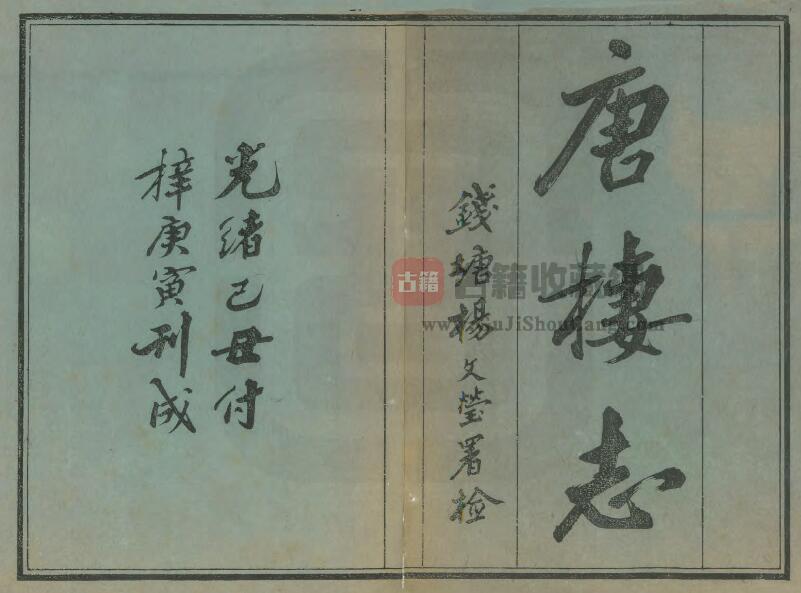 唐棲志
錢塘楊文瑩署檢
光緒己丑付
梓庚寅刊成
古籍
古籍收藏
www.GuJiShouCang.com